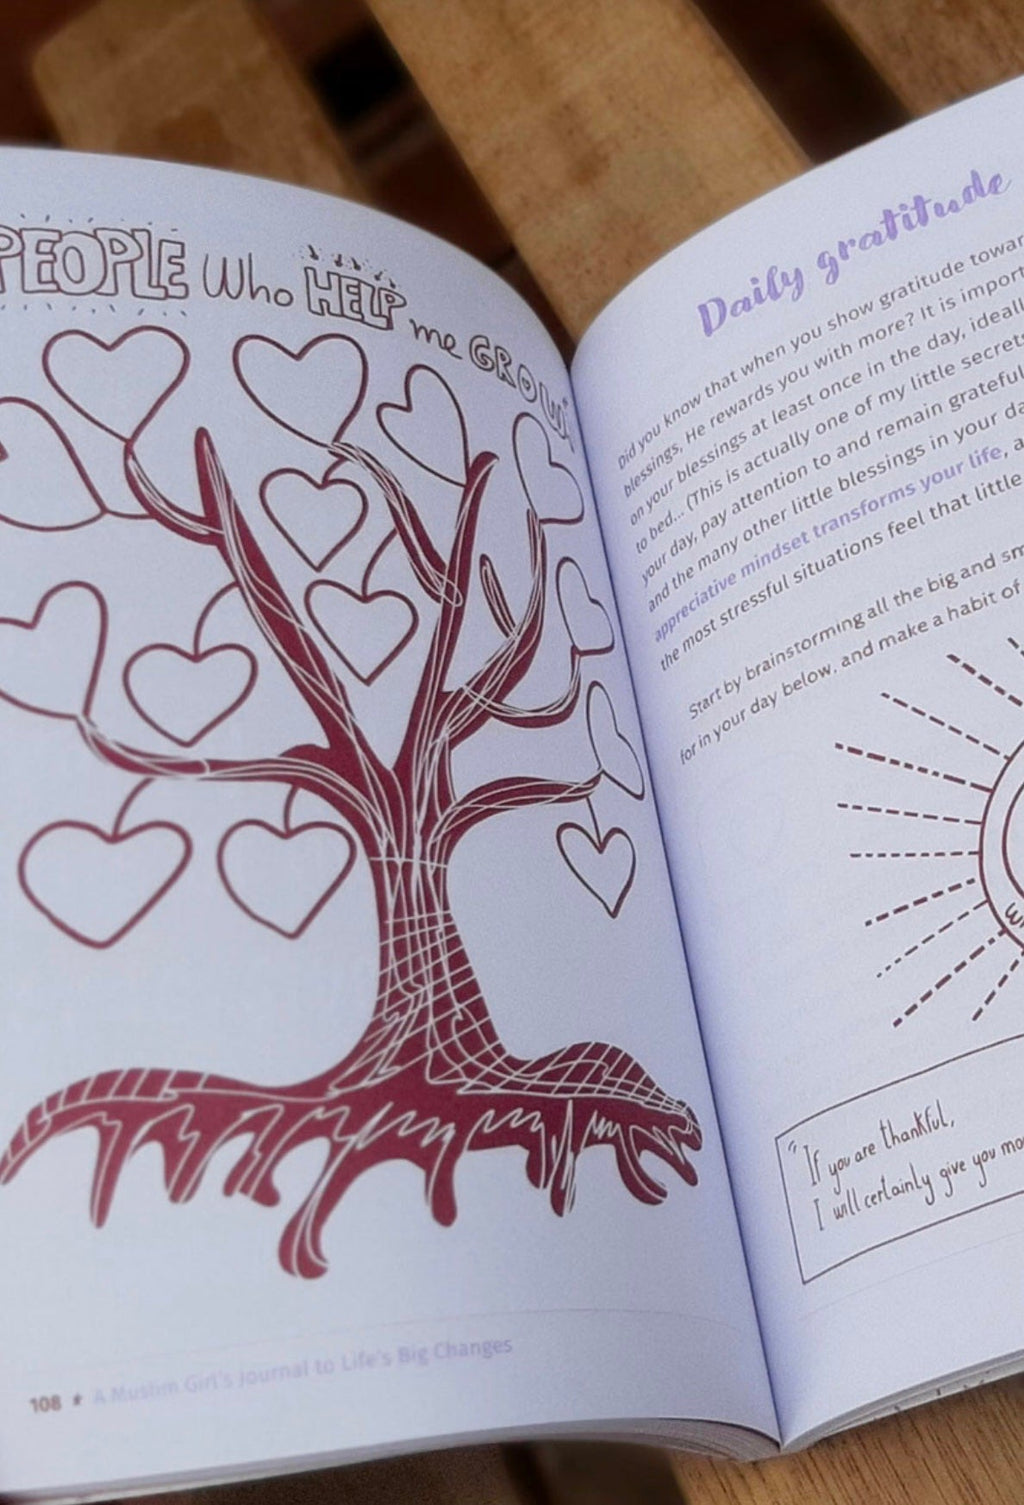 PEOPLE Who HELP me GROW
108 ★ A Muslim Girl's Journal to Life's Big Changes
Daily gratitude
Did you know that when you show gratitude
blessings, He rewards you with more? It is
on your blessings at least once in the day,
to bed... (This is actually one of my little secrets
your day, pay attention to and remain grateful
and the many other little blessings in your
appreciative mindset transforms your life,
the most stressful situations feel that little
Start by brainstorming all the big and
for in your day below, and make a habit of
"If you are thankful,
I will certainly give you